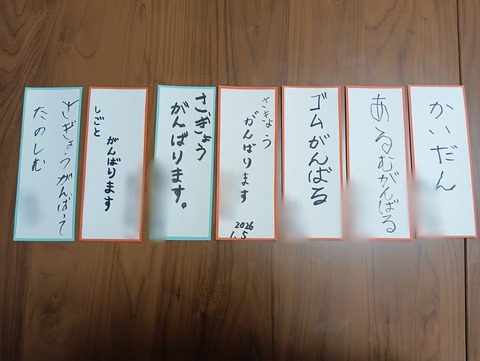 かいだん
あるむがんばる
ゴムがんばる
さぎょう
がんばります
2026
1.5
さぎょう
がんばります。
しごと
がんばります
さぎょうがんばって
たのしむ